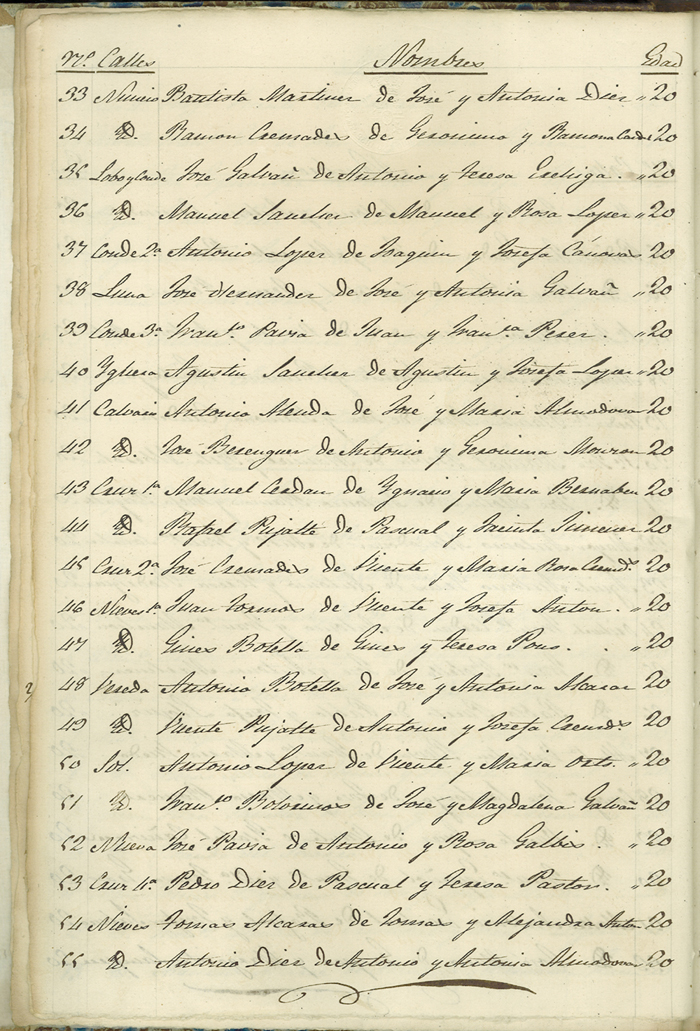 Nº. Calles Nombres Edad
33 Bautista Martinez de José y Antonia Diez " 20
34 D. Ramon Cremades de Geronimo y Ramona 20
35 Lobo y Conde José Galvañ de Antonio y Teresa " 20
36 D. Manuel Sanchez de Manuel y Rosa Lopez " 20
37 Conde 2ª Antonio Lopez de Joaquin y Josefa Cánovas 20
38 Luna José Hernandez de José y Antonia Galvañ " 20
39 Conde 3ª Fran.co Pavia de Juan y Fran.ca Perez. " 20
40 Yglesia Agustin Sanchez de Agustin y Josefa Lopez " 20
41 Calvario Antonio Alenda de José y Maria Almodovar 20
42 D. José Berenguer de Antonio y Geronima 20
43 Cruz 1ª Manuel Cerdan de Ygnacio y Maria Bernabeu 20
44 D. Rafael Pujalte de Pascual y Jacinta Jimenez 20
45 Cruz 2ª José Cremades de Vicente y Maria Rosa Cremds. 20
46 Nieves 1ª Juan Tormos de Vicente y Josefa Anton. " 20
47 D. Gines Botella de Gines y Teresa Pons. " 20
48 Vereda Antonio Botella de José y Antonia Alcaraz 20
49 D. Vicente Pujalte de Antonio y Josefa Cremds. 20
50 Sol. Antonio Lopez de Vicente y Maria Orts. " 20
51 D. Fran.co de José y Magdalena Galvañ 20
52 Nueva José Pavia de Antonio y Rosa Galbis. " 20
53 Cruz 4ª Pedro Diez de Pascual y Teresa Pastor. " 20
54 Nieves Tomas Alcaraz de Tomas y Alejandra Anton 20
55 D. Antonio Diez de Antonio y Antonia Almodovar 20